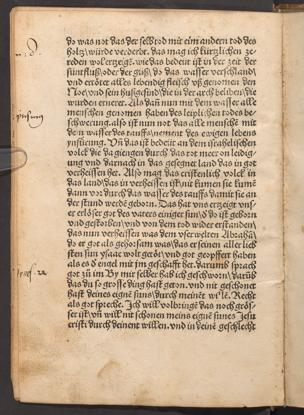 do was not das der selb tod mit eim andern tod des
holtz wurde verderbt. das mag ich kurtzlichen ze
reden wol erzeigē. wie das bedeüt ist in der zeit der
süntfluß/oder der güß/ do das wasser verschland
vnd ertöter alles lebendig fleisch vß genomen den
Noe/vnd sein hußgesind/die in der arch beliben/die
wurden ernerer. Als dañ nun mit dem wasser alle
menschen genomen haben des leiplichen todes be
schwerung. also ist nun not das alle mensche mit
dem wasser des tauffs/nement des ewigen lebens
ynfürung. Vñ das ist bedeüt an dem israhelischen
volck die da giengen durch das rot meer on leidig
ung vnd darnach in das gesegnet land das in got
verheissen het. Also mag das cristenlich volck in
das land/das in verheissen ist/nit kumen sie kume
dann vor durch das wasser des tauffs damit sie an
der stund werde geborn. Das hat vns erzeigt vnf-
er erlöser got des vaters einiger sun/ do ist geborn
vnd gestorben/vnd von dem tod wider erstanden/
das nun verheissen was dem vser welten Abrahā/
do er got als gehorsam was/das er seinen aller lieb
sten sun ysaac wolt gerot/vnd got geopffert haben
als es d̄ engel mit jm geschafft het. darumb sprach
got zů im By mir selber hab ich geschworn/darūb
das du so grosse ding hast geton. vnd nit geschonet
hast deines eignē suns/durch meinēt willē. Recht
als got spreche. Ich will volbringē das noch grös-
ser ist/vñ will nit schonen meins eignē suns Jesu
cristi durch deinent willen. vnd in deinē geschlecht